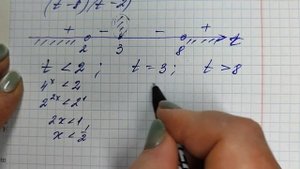 (t-8)(t-2)
+ - - +
2 3 8 t
t < 2 ; t = 3 ; t > 8
4ˣ < 2
2²ˣ < 2¹
2x < 1
x < 1/2